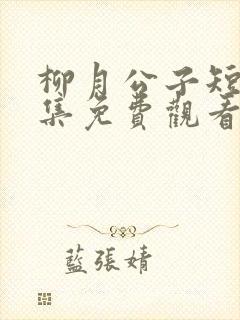 柳月公子短
集免費觀看
藍張婧